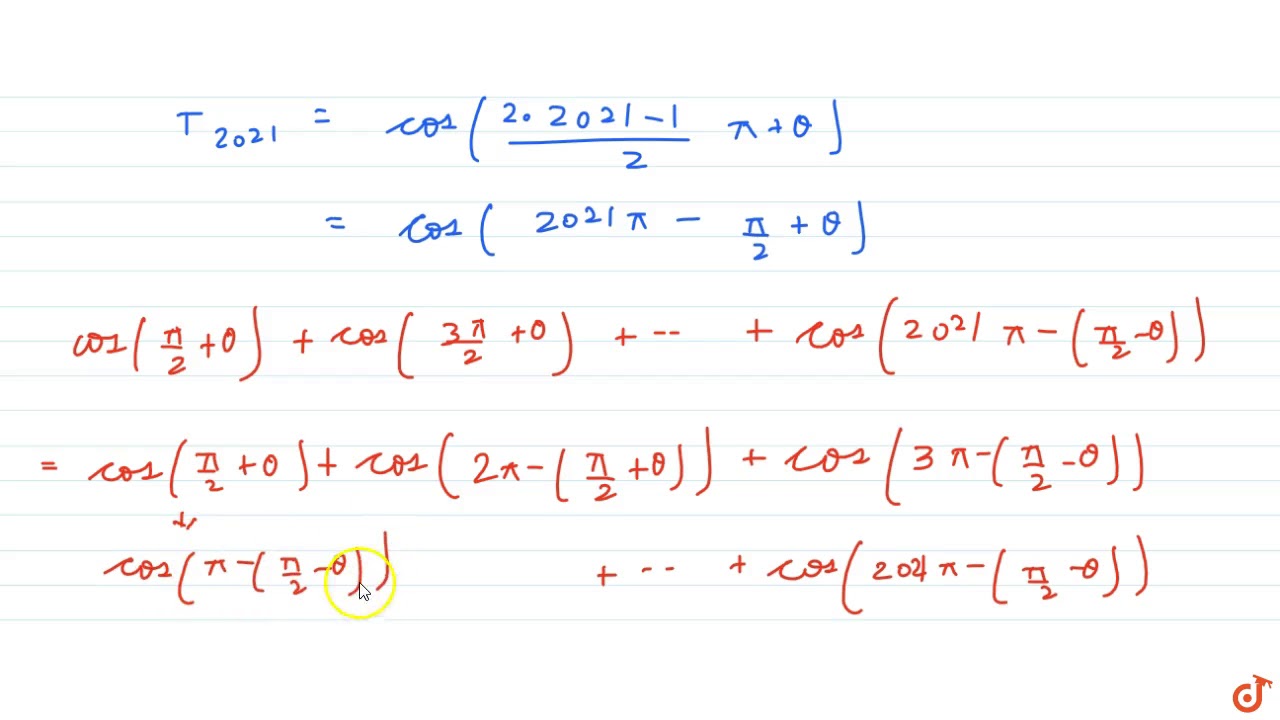 T 2021 = cos( (2. 2021 - 1)/2 π + θ )
= cos( 2021 π - π/2 + θ )
cos( π/2 + θ ) + cos( 3π/2 + θ ) + -- + cos( 2021 π - ( π/2 - θ ) )
= cos( π/2 + θ ) + cos( 2π - ( π/2 + θ ) ) + cos( 3π - ( π/2 - θ ) )
cos( π - ( π/2 - θ ) ) + -- + cos( 2021 π - ( π/2 - θ ) )